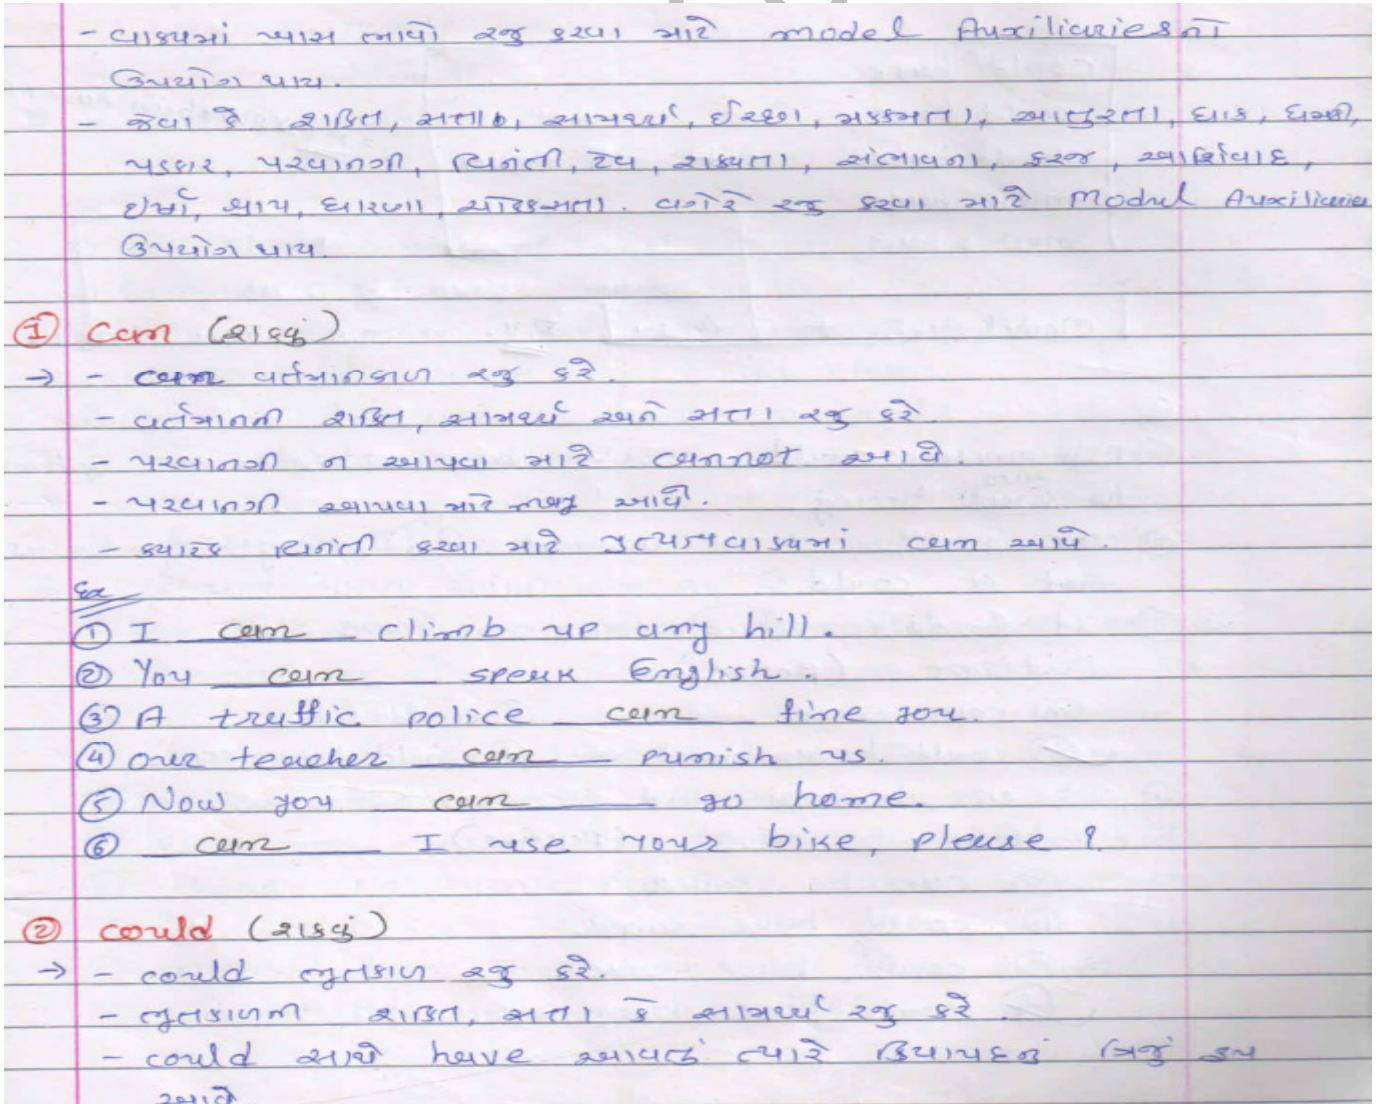 - વાક્યમાં ખાસ ભાવો રજુ કરવા માટે model Auxiliariesનો
ઉપયોગ થાય.
- જેવા કે શક્તિ, સત્તા, સામર્થ્ય, ઈચ્છા, મક્કમતા, આતુરતા, ધાક, ધમકી,
પડકાર, પરવાનગી, વિનંતી, ટેવ, શક્યતા, સંભાવના, ફરજ, આર્શિવાદ,
ઇર્ષા, શ્રાપ, ધારણા, ચોક્કસતા. વગેરે રજુ કરવા માટે Modul Auxiliaries
ઉપયોગ થાય.
① Can (શકવું)
→ - can વર્તમાનકાળ રજુ કરે.
- વર્તમાનની શક્તિ, સામર્થ્ય અને સત્તા રજુ કરે.
- પરવાનગી ન આપવા માટે cannot આવે.
- પરવાનગી આપવા માટે may આવે.
- ક્યારેક વિનંતી કરવા માટે પ્રશ્નવાક્યમાં can આવે.
Ex
① I can climb up any hill.
② You can speak English.
③ A traffic police can fine you
④ Our teacher can punish us.
⑤ Now you can go home.
⑥ can I use your bike, please ?
② could (શકવું)
→ - could ભુતકાળ રજુ કરે.
- ભુતકાળની શક્તિ, સત્તા કે સામર્થ્ય રજુ કરે.
- could સાથે have આવતું ત્યારે ક્રિયાપદનું ત્રિજું રૂપ
આવે